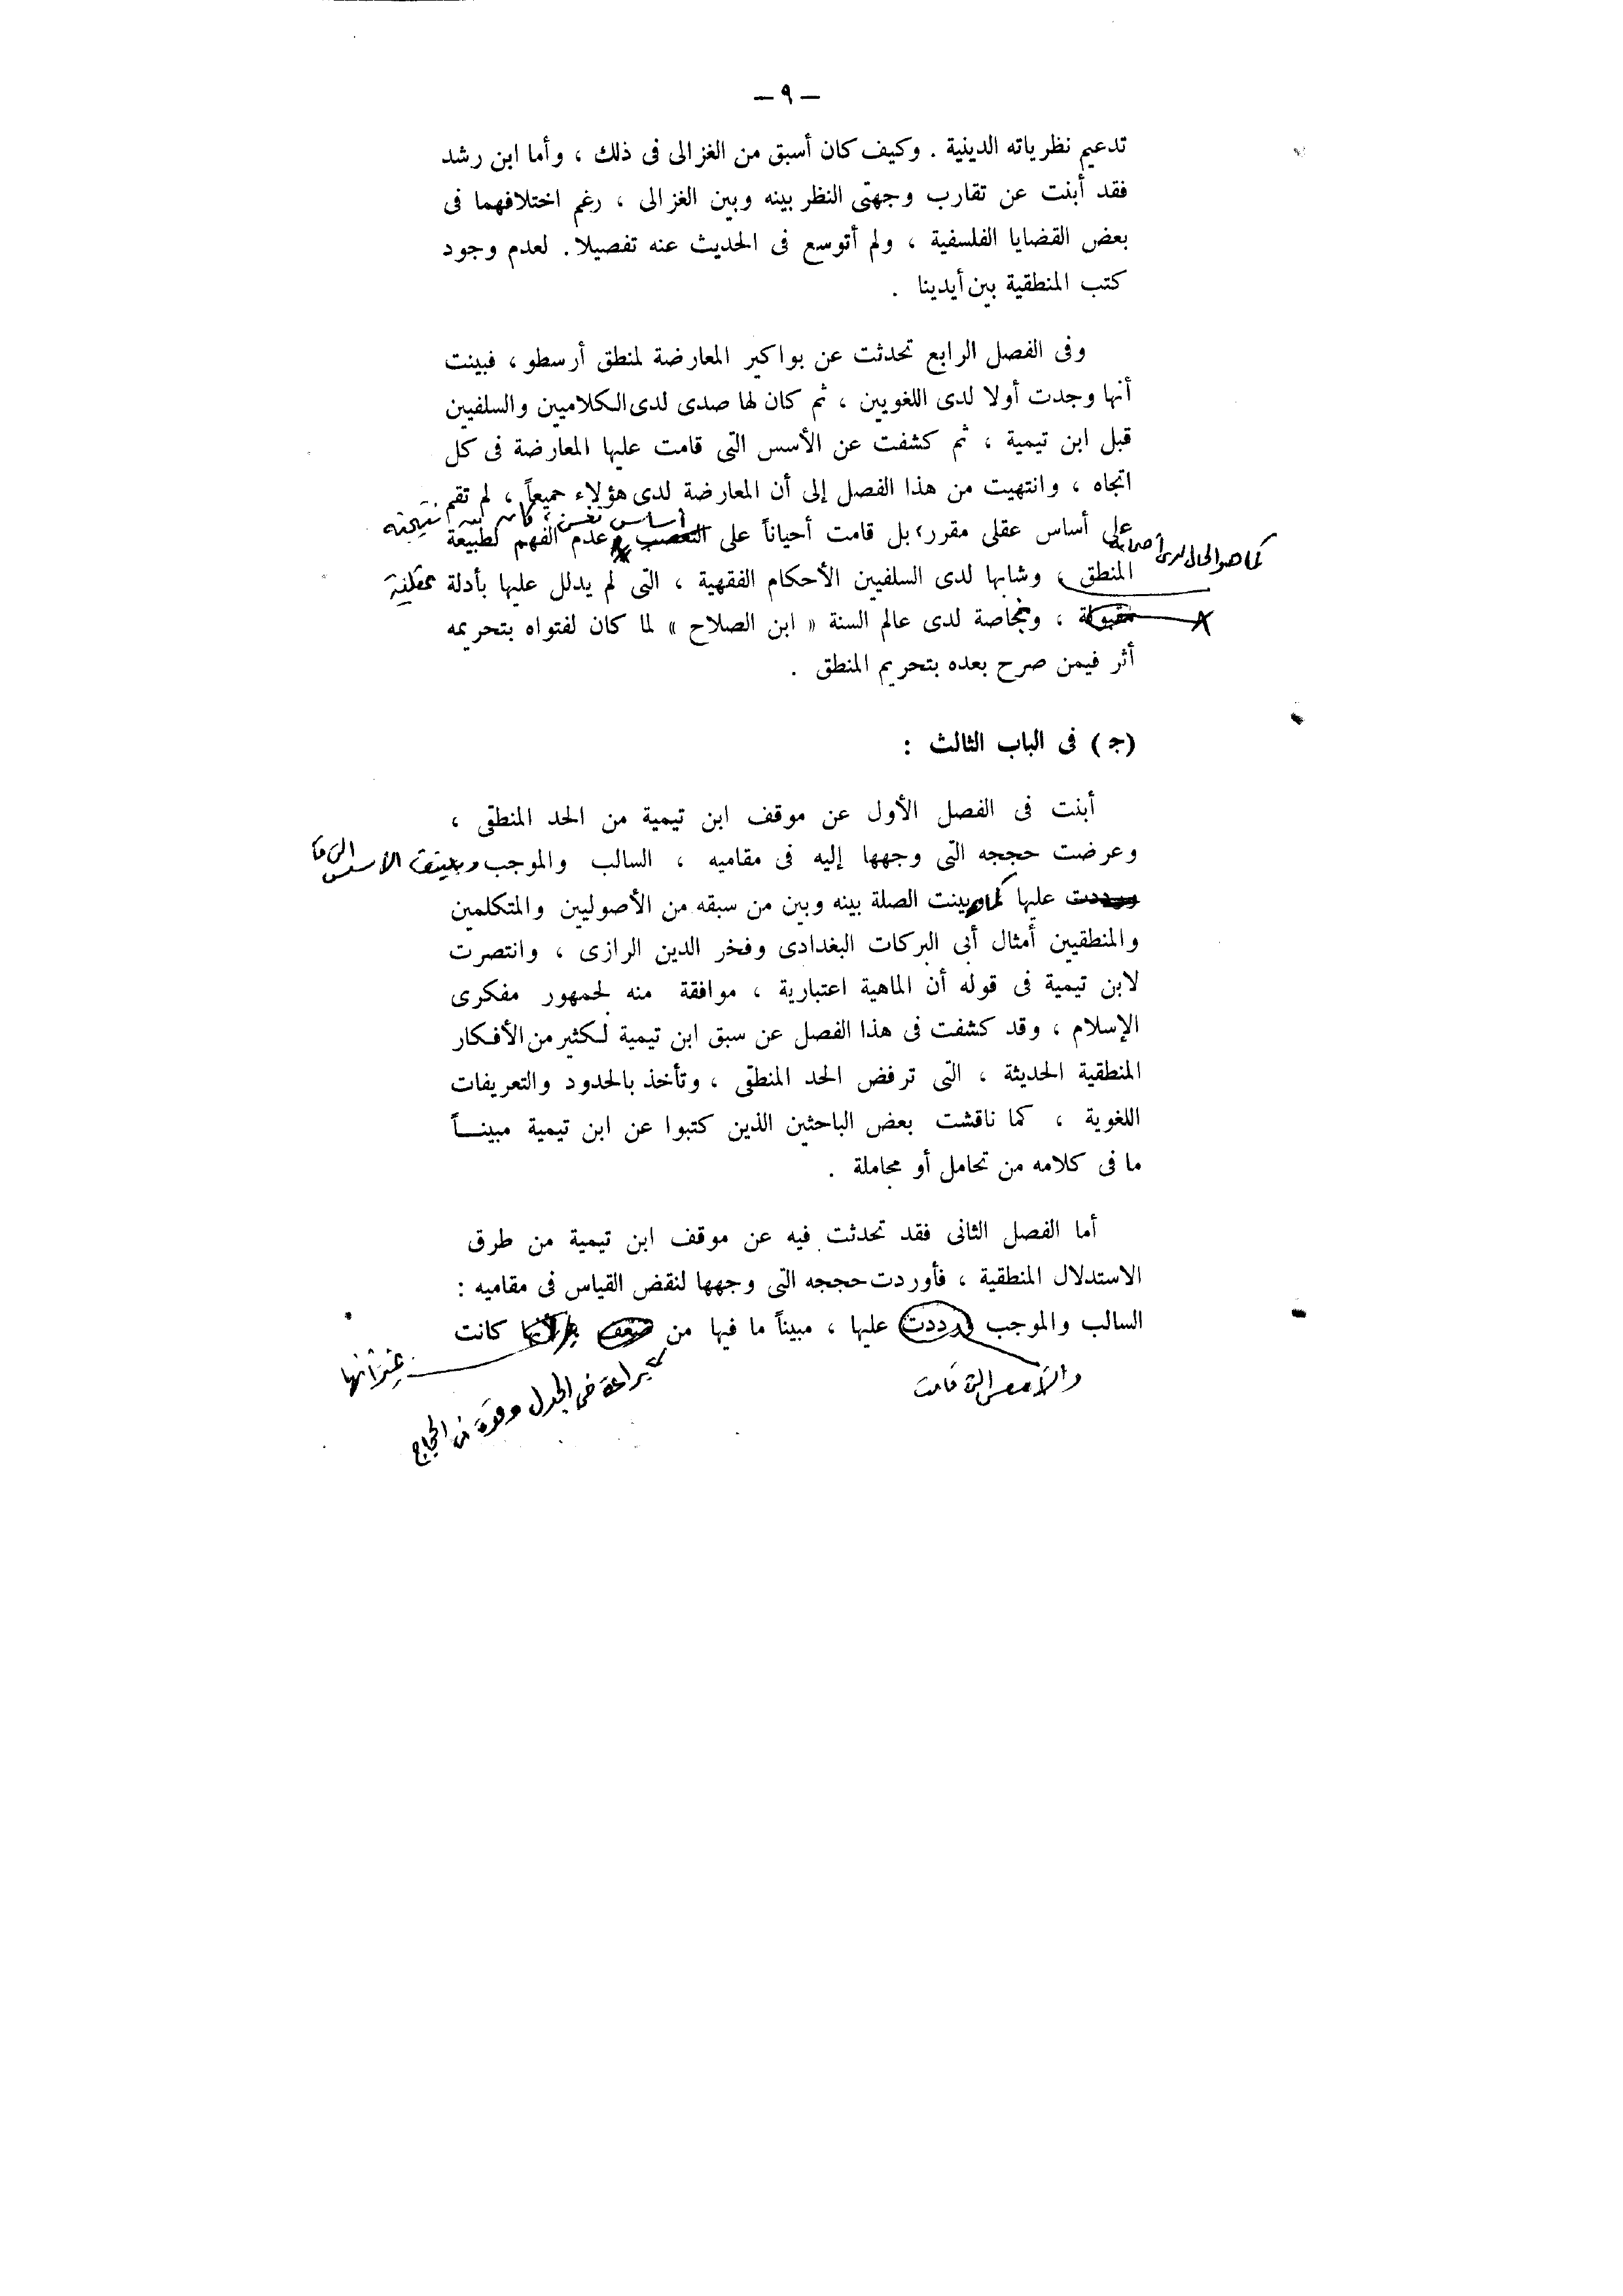 — ٩ —
تدعيم نظرياته الدينية . وكيف كان أسبق من الغزالى فى ذلك ، وأما ابن رشد
فقد أبنت عن تقارب وجهتى النظر بينه وبين الغزالى ، رغم اختلافهما فى
بعض القضايا الفلسفية ، ولم أتوسع فى الحديث عنه تفصيلا . لعدم وجود
كتب المنطقية بين أيدينا .
وفى الفصل الرابع تحدثت عن بواكير المعارضة لمنطق أرسطو ، فبينت
أنها وجدت أولا لدى اللغويين ، ثم كان لها صدى لدى الكلاميين والسلفيين
قبل ابن تيمية ، ثم كشفت عن الأسس التى قامت عليها المعارضة فى كل
اتجاه ، وانتهيت من هذا الفصل إلى أن المعارضة لدى هؤلاء جميعاً ، لم تقم
أساس نفسى كان نتيجته
على أساس عقلى مقرر ، بل قامت أحياناً على التعصب وعدم الفهم لطبيعة
كما هو الحال لدى
المنطق ، وشابها لدى السلفيين الأحكام الفقهية ، التى لم يدلل عليها بأدلة عقلية
مقبولة ، وبخاصة لدى عالم السنة « ابن الصلاح » لما كان لفتواه بتحريمه
أثر فيمن صرح بعده بتحريم المنطق .
(ج) فى الباب الثالث :
أبنت فى الفصل الأول عن موقف ابن تيمية من الحد المنطقى ،
وعرضت حججه التى وجهها إليه فى مقاميه ، السالب والموجب وبينت الأسس التى قا
ورددت عليها كما وبينت الصلة بينه وبين من سبقه من الأصوليين والمتكلمين
والمنطقيين أمثال أبى البركات البغدادى وفخر الدين الرازى ، وانتصرت
لابن تيمية فى قوله أن الماهية اعتبارية ، موافقة منه لجمهور مفكرى
الإسلام ، وقد كشفت فى هذا الفصل عن سبق ابن تيمية لكثير من الأفكار
المنطقية الحديثة ، التى ترفض الحد المنطقى ، وتأخذ بالحدود والتعريفات
اللغوية ، كما ناقشت بعض الباحثين الذين كتبوا عن ابن تيمية مبينـــاً
ما فى كلامه من تحامل أو مجاملة .
أما الفصل الثانى فقد تحدثت فيه عن موقف ابن تيمية من طرق
الاستدلال المنطقية ، فأوردت حججه التى وجهها لنقض القياس فى مقاميه :
السالب والموجب ورددت عليها ، مبيناً ما فيها من ضعف كانت
غير أنها
والأسس التى قامت
براعة فى الجدل وقوة فى الحجاج